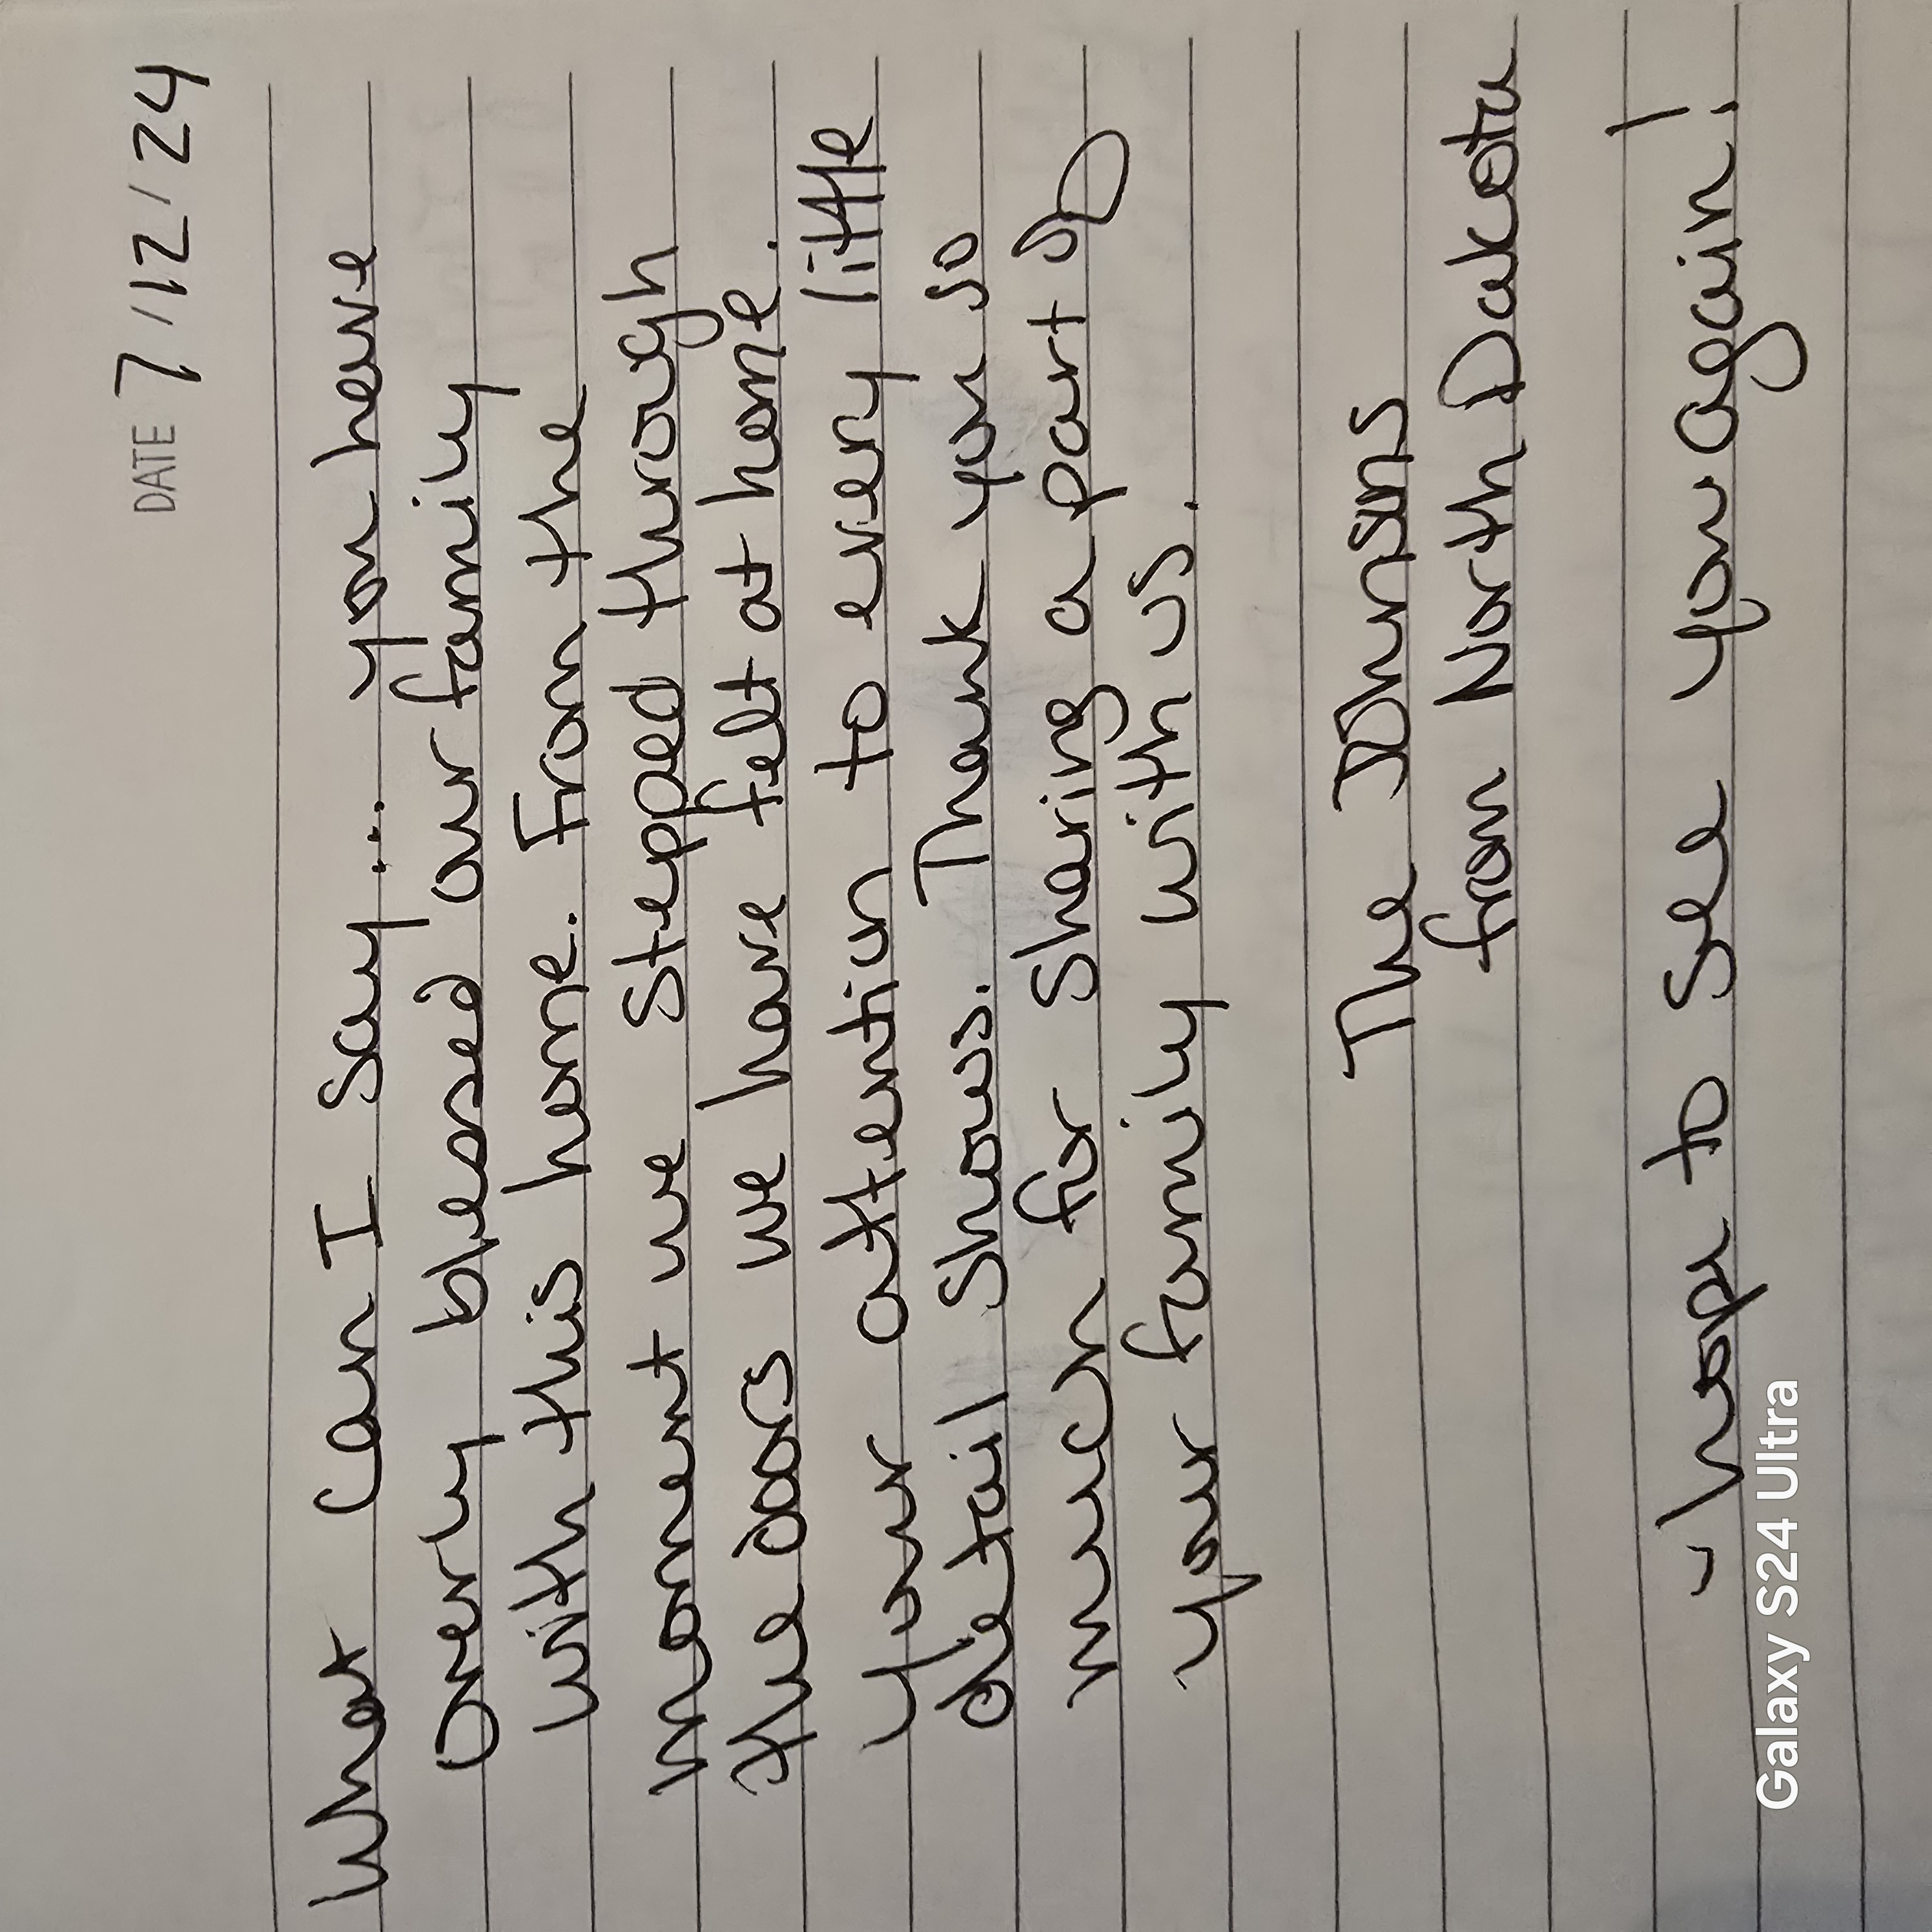 DATE 7/12/24
What can I say... you have
Overly blessed our family
with this home. From the
moment we stepped through
the doors we have felt at home.
Your attention to every little
detail shows. Thank you so
much for sharing a part of
your family with us.
The
from North Dakota
~ hope to see you again!
Galaxy S24 Ultra